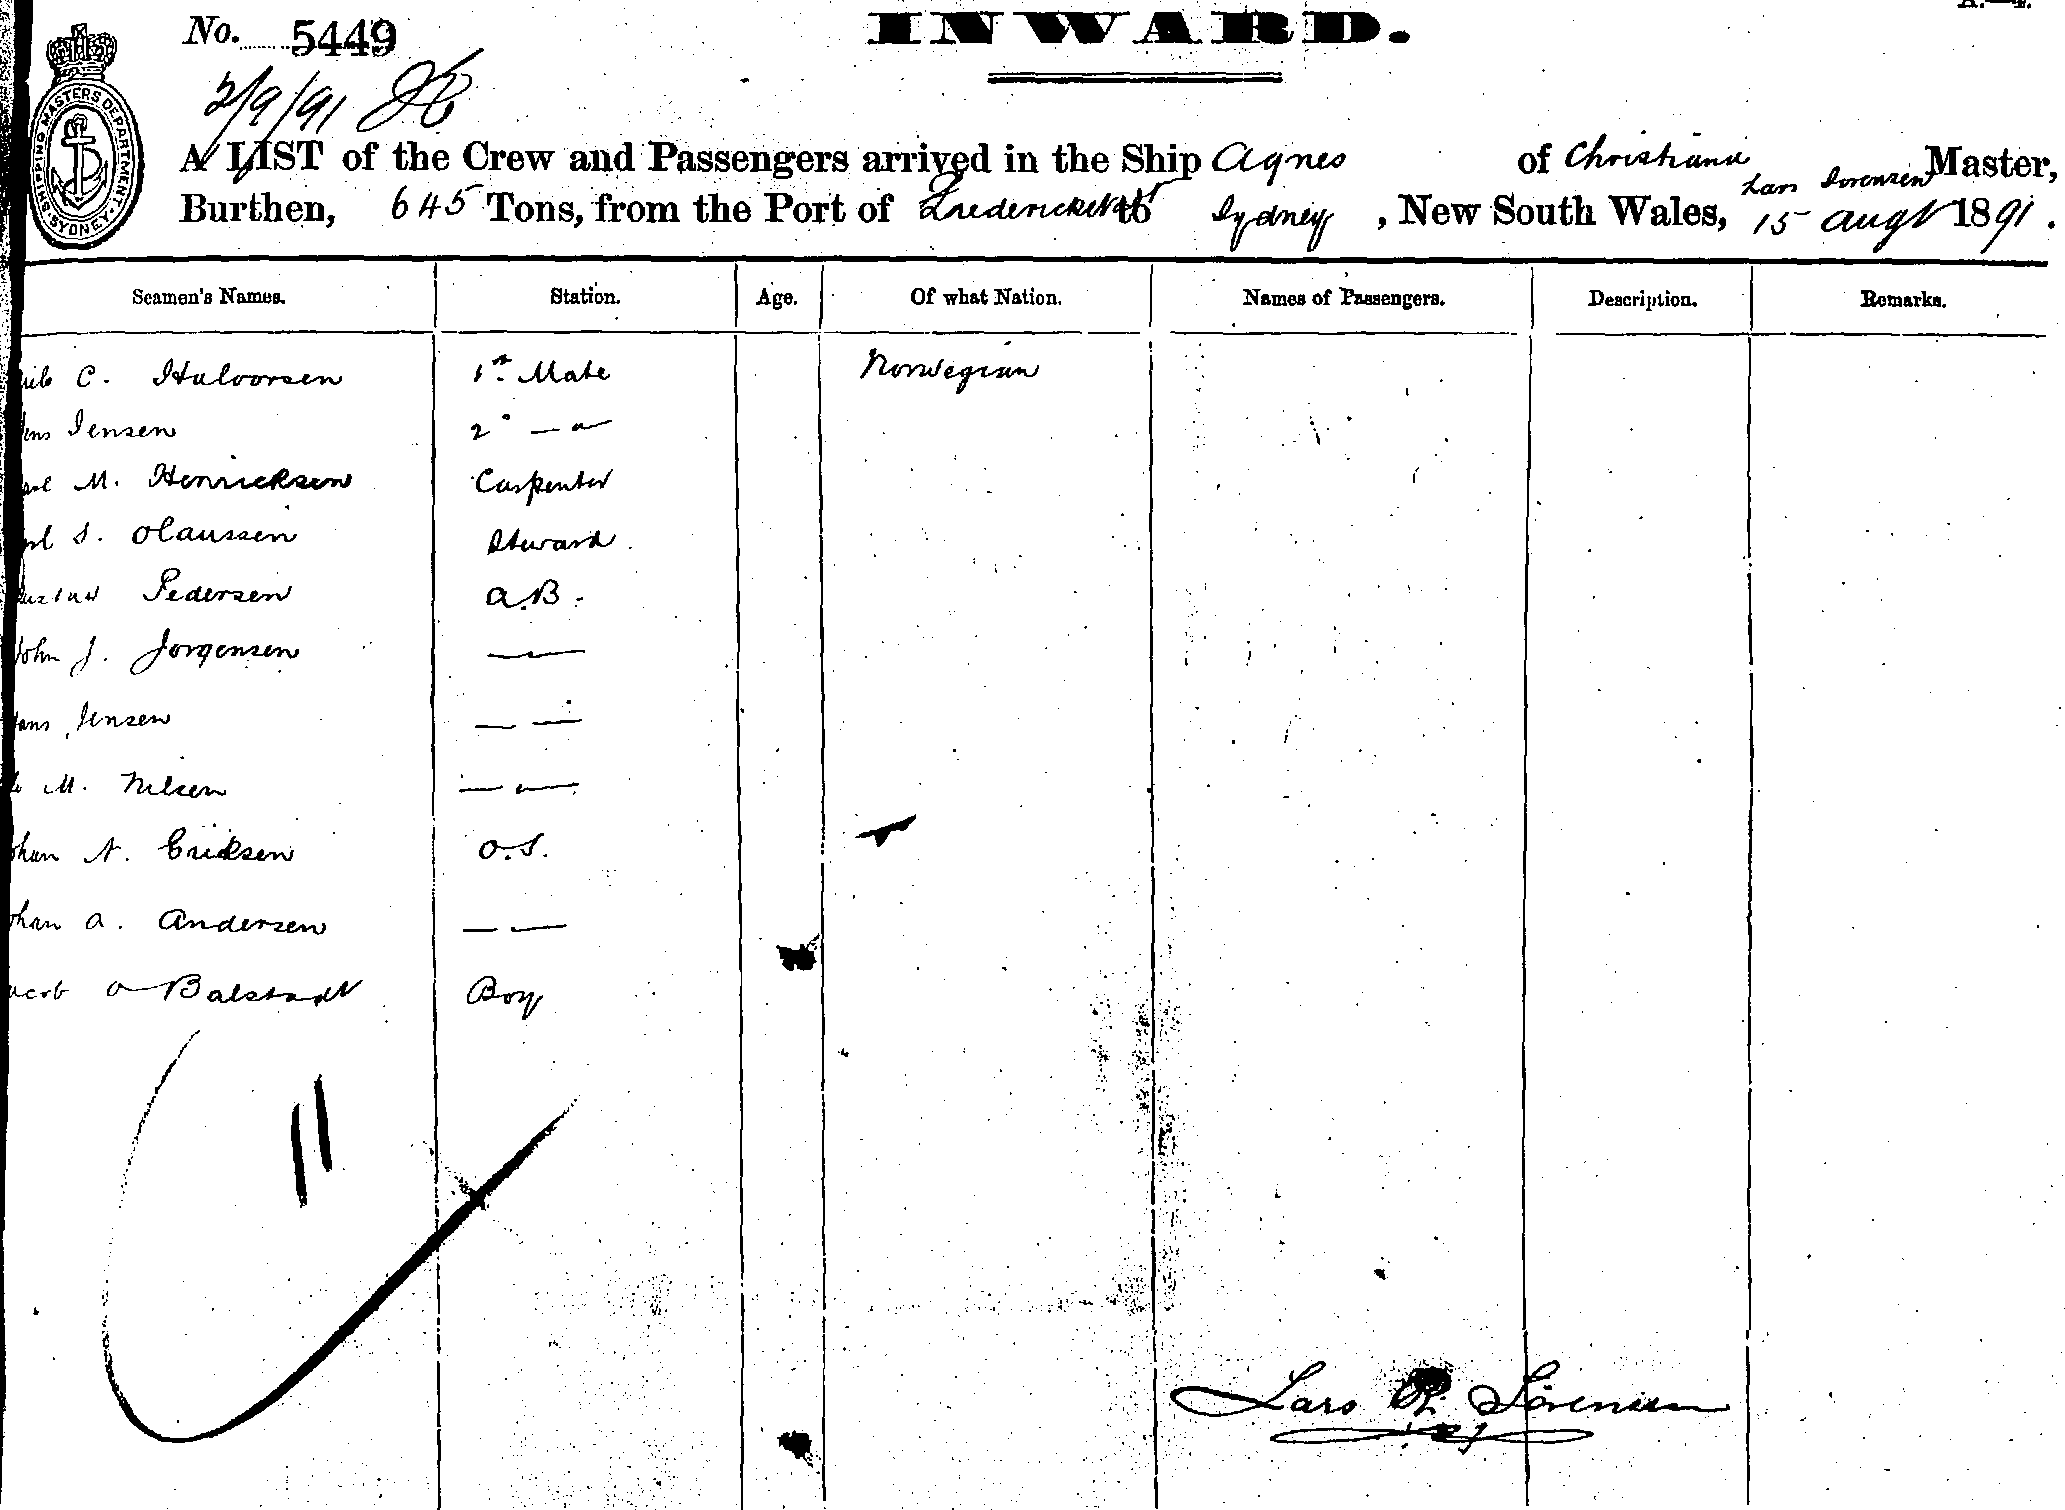 No. 5449
INWARD.
2/9/91
SHIPPING MASTERS DEPARTMENT SYDNEY
A LIST of the Crew and Passengers arrived in the Ship Agnes of Christiana Lars Sorensen Master,
Burthen, 645 Tons, from the Port of to Sydney, New South Wales, 15 Augt 1891.
Seamen's Names. Station. Age. Of what Nation. Names of Passengers. Description. Remarks.
C. Halvorsen 1st Mate Norwegian
Jensen 2d — " —
M. Henricksen Carpenter
S. Olaussen Steward
Pedersen A.B.
John J. Jorgensen — " —
Jensen — " —
M. Nilsen — " —
N. Eriksen O.S.
A. Andersen — " —
O Balstadt Boy
11
Lars Sörensen